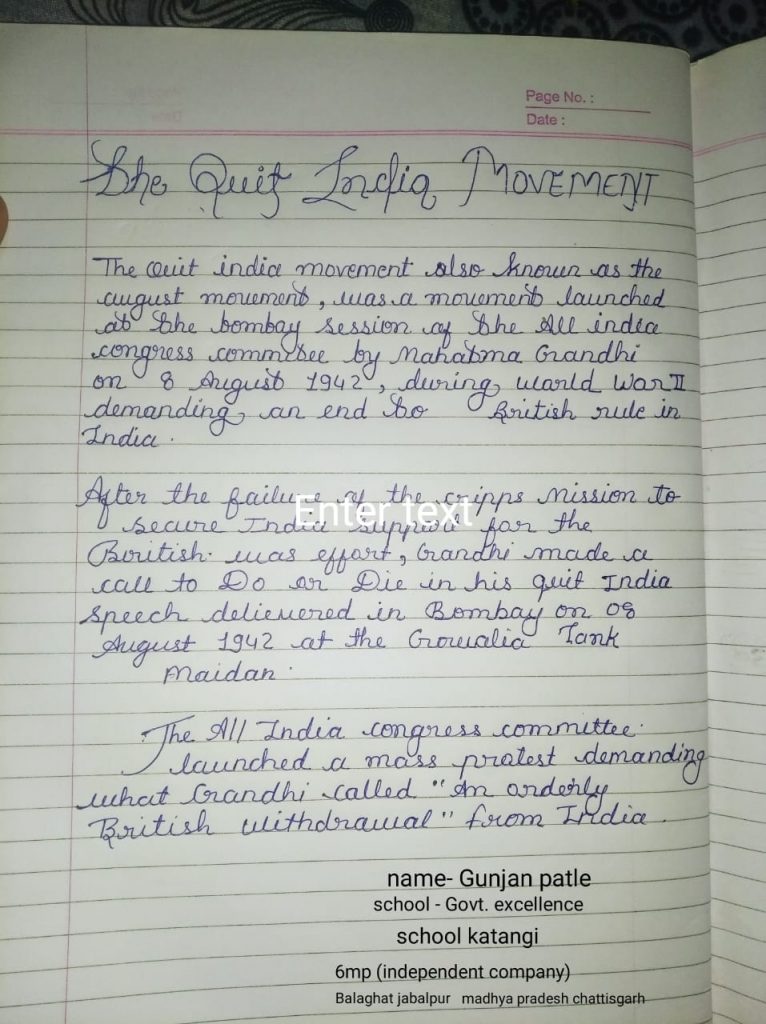 Page No. :
Date :
The Quit India MOVEMENT
The Quit india movement also known as the
august movement, was a movement launched
at the bombay session of the All india
congress committee by Mahatma Gandhi
on 8 August 1942, during world War II
demanding an end to British rule in
India.
After the failure of the cripps Mission to
secure India support for the
Enter text
British was effort, Gandhi made a
call to Do or Die in his quit India
speech delievered in Bombay on 08
August 1942 at the Gowalia Tank
Maidan.
The All India congress committee.
launched a mass protest demanding
what Gandhi called "An orderly
British withdrawal" from India.
name- Gunjan patle
school - Govt. excellence
school katangi
6mp (independent company)
Balaghat jabalpur madhya pradesh chattisgarh